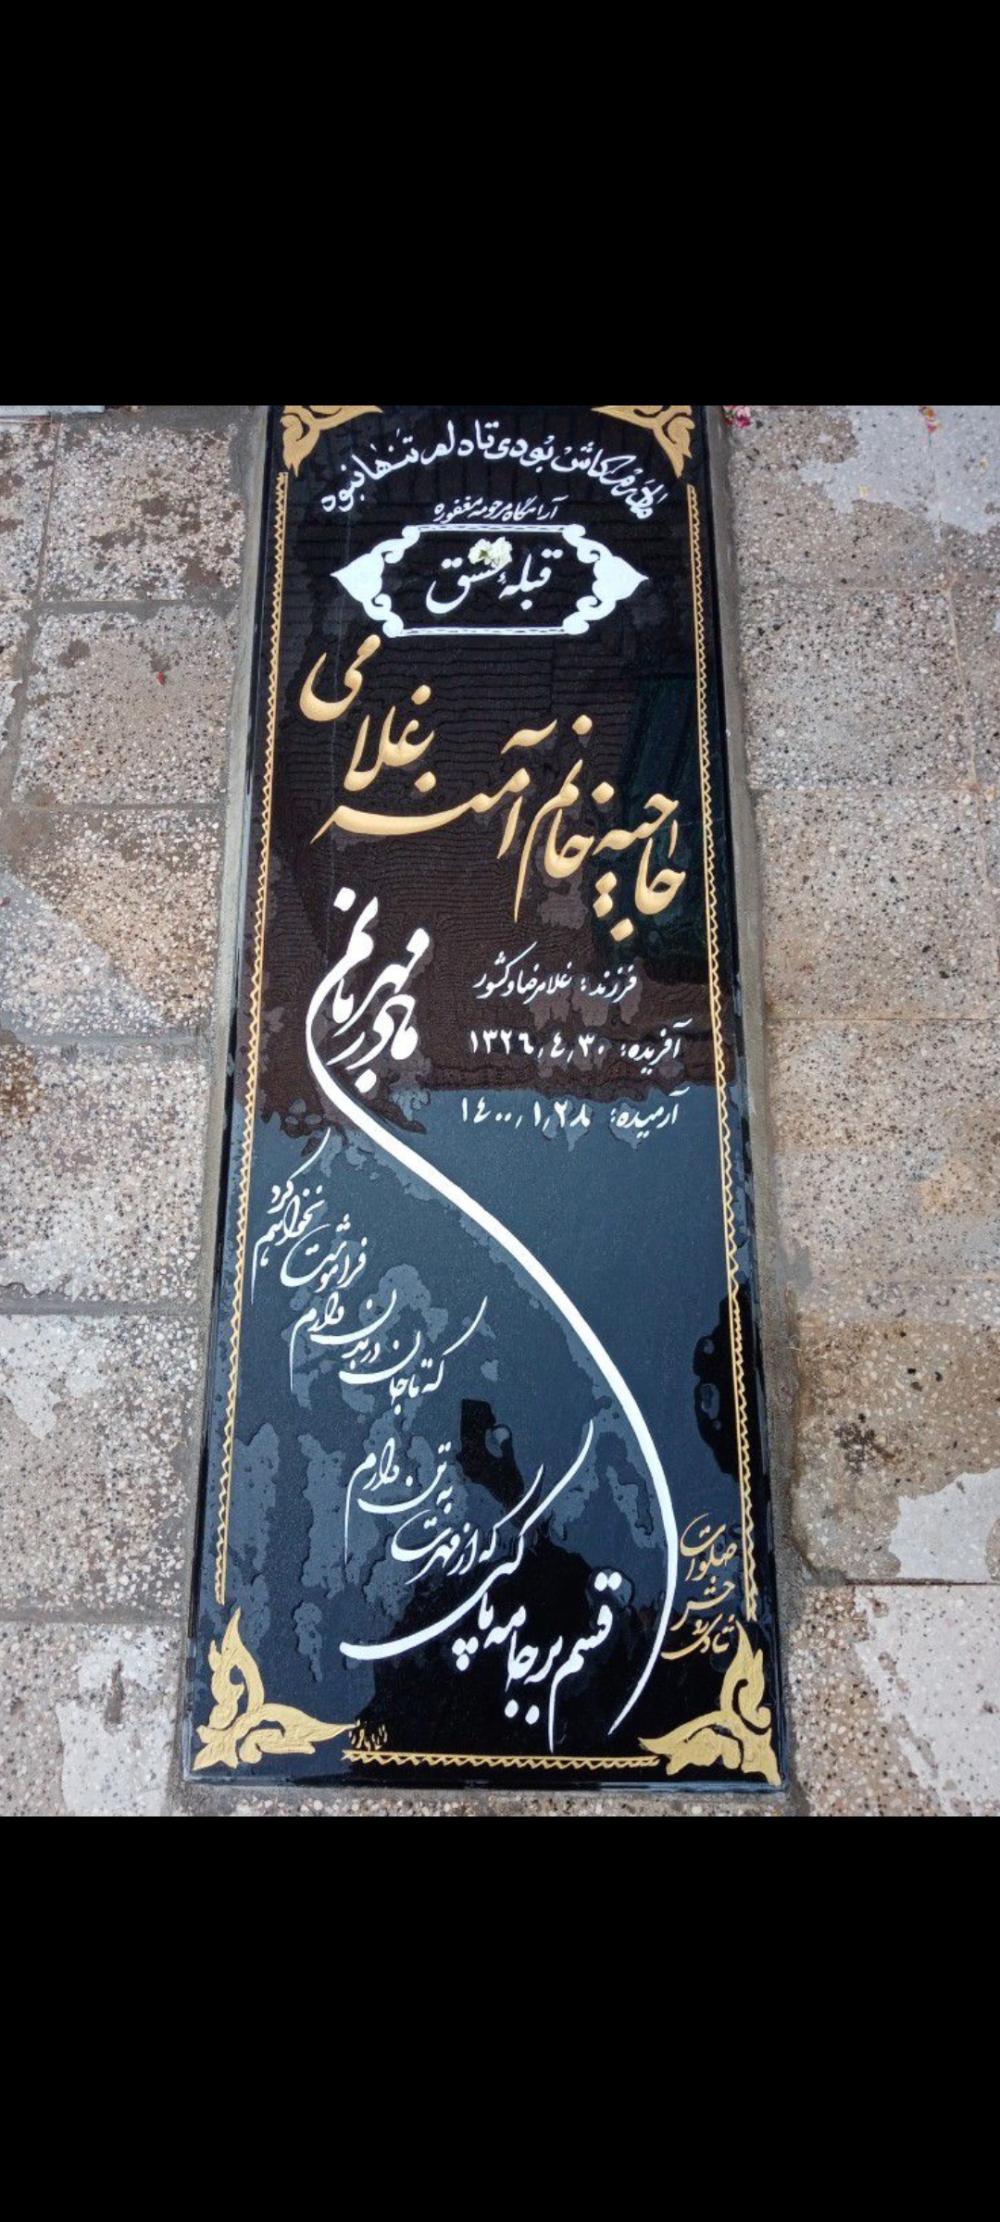 مادرم کاش بودی تا دلم تنها نبود
آرامگاه مرحومه مغفوره
قبله عشق
حاجیه خانم آمنه غلامی
فرزند: غلامرضا و کشور
آفریده: ۱۳۲۶٫۴٫۳۰
آرمیده: ۱۴۰۰٫۱٫۲۸
مادر مهربانم
قسم بر جامه پاکی که از مهرت به تن دارم
فراموشت نخواهم کرد
که تا جان در بدن دارم
شادی روحش صلوات